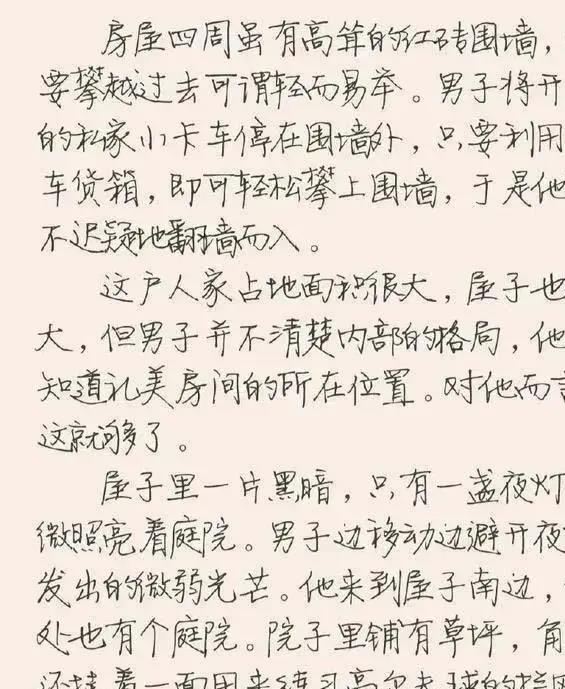 房屋四周虽有高耸的红砖围墙，
要攀越过去可谓轻而易举。男子将开
的私家小卡车停在围墙外，只要利用
车货箱，即可轻松攀上围墙，于是他
不迟疑地翻墙而入。
这户人家占地面积很大，屋子也
大，但男子并不清楚内部的格局，他
知道礼美房间的所在位置。对他而言
这就够了。
屋子里一片黑暗，只有一盏夜灯
微照亮着庭院。男子边移动边避开夜
发出的微弱光芒。他来到屋子南边，
处也有个庭院。院子里铺有草坪，角
还挂着一面用来练习高尔夫球的拦网